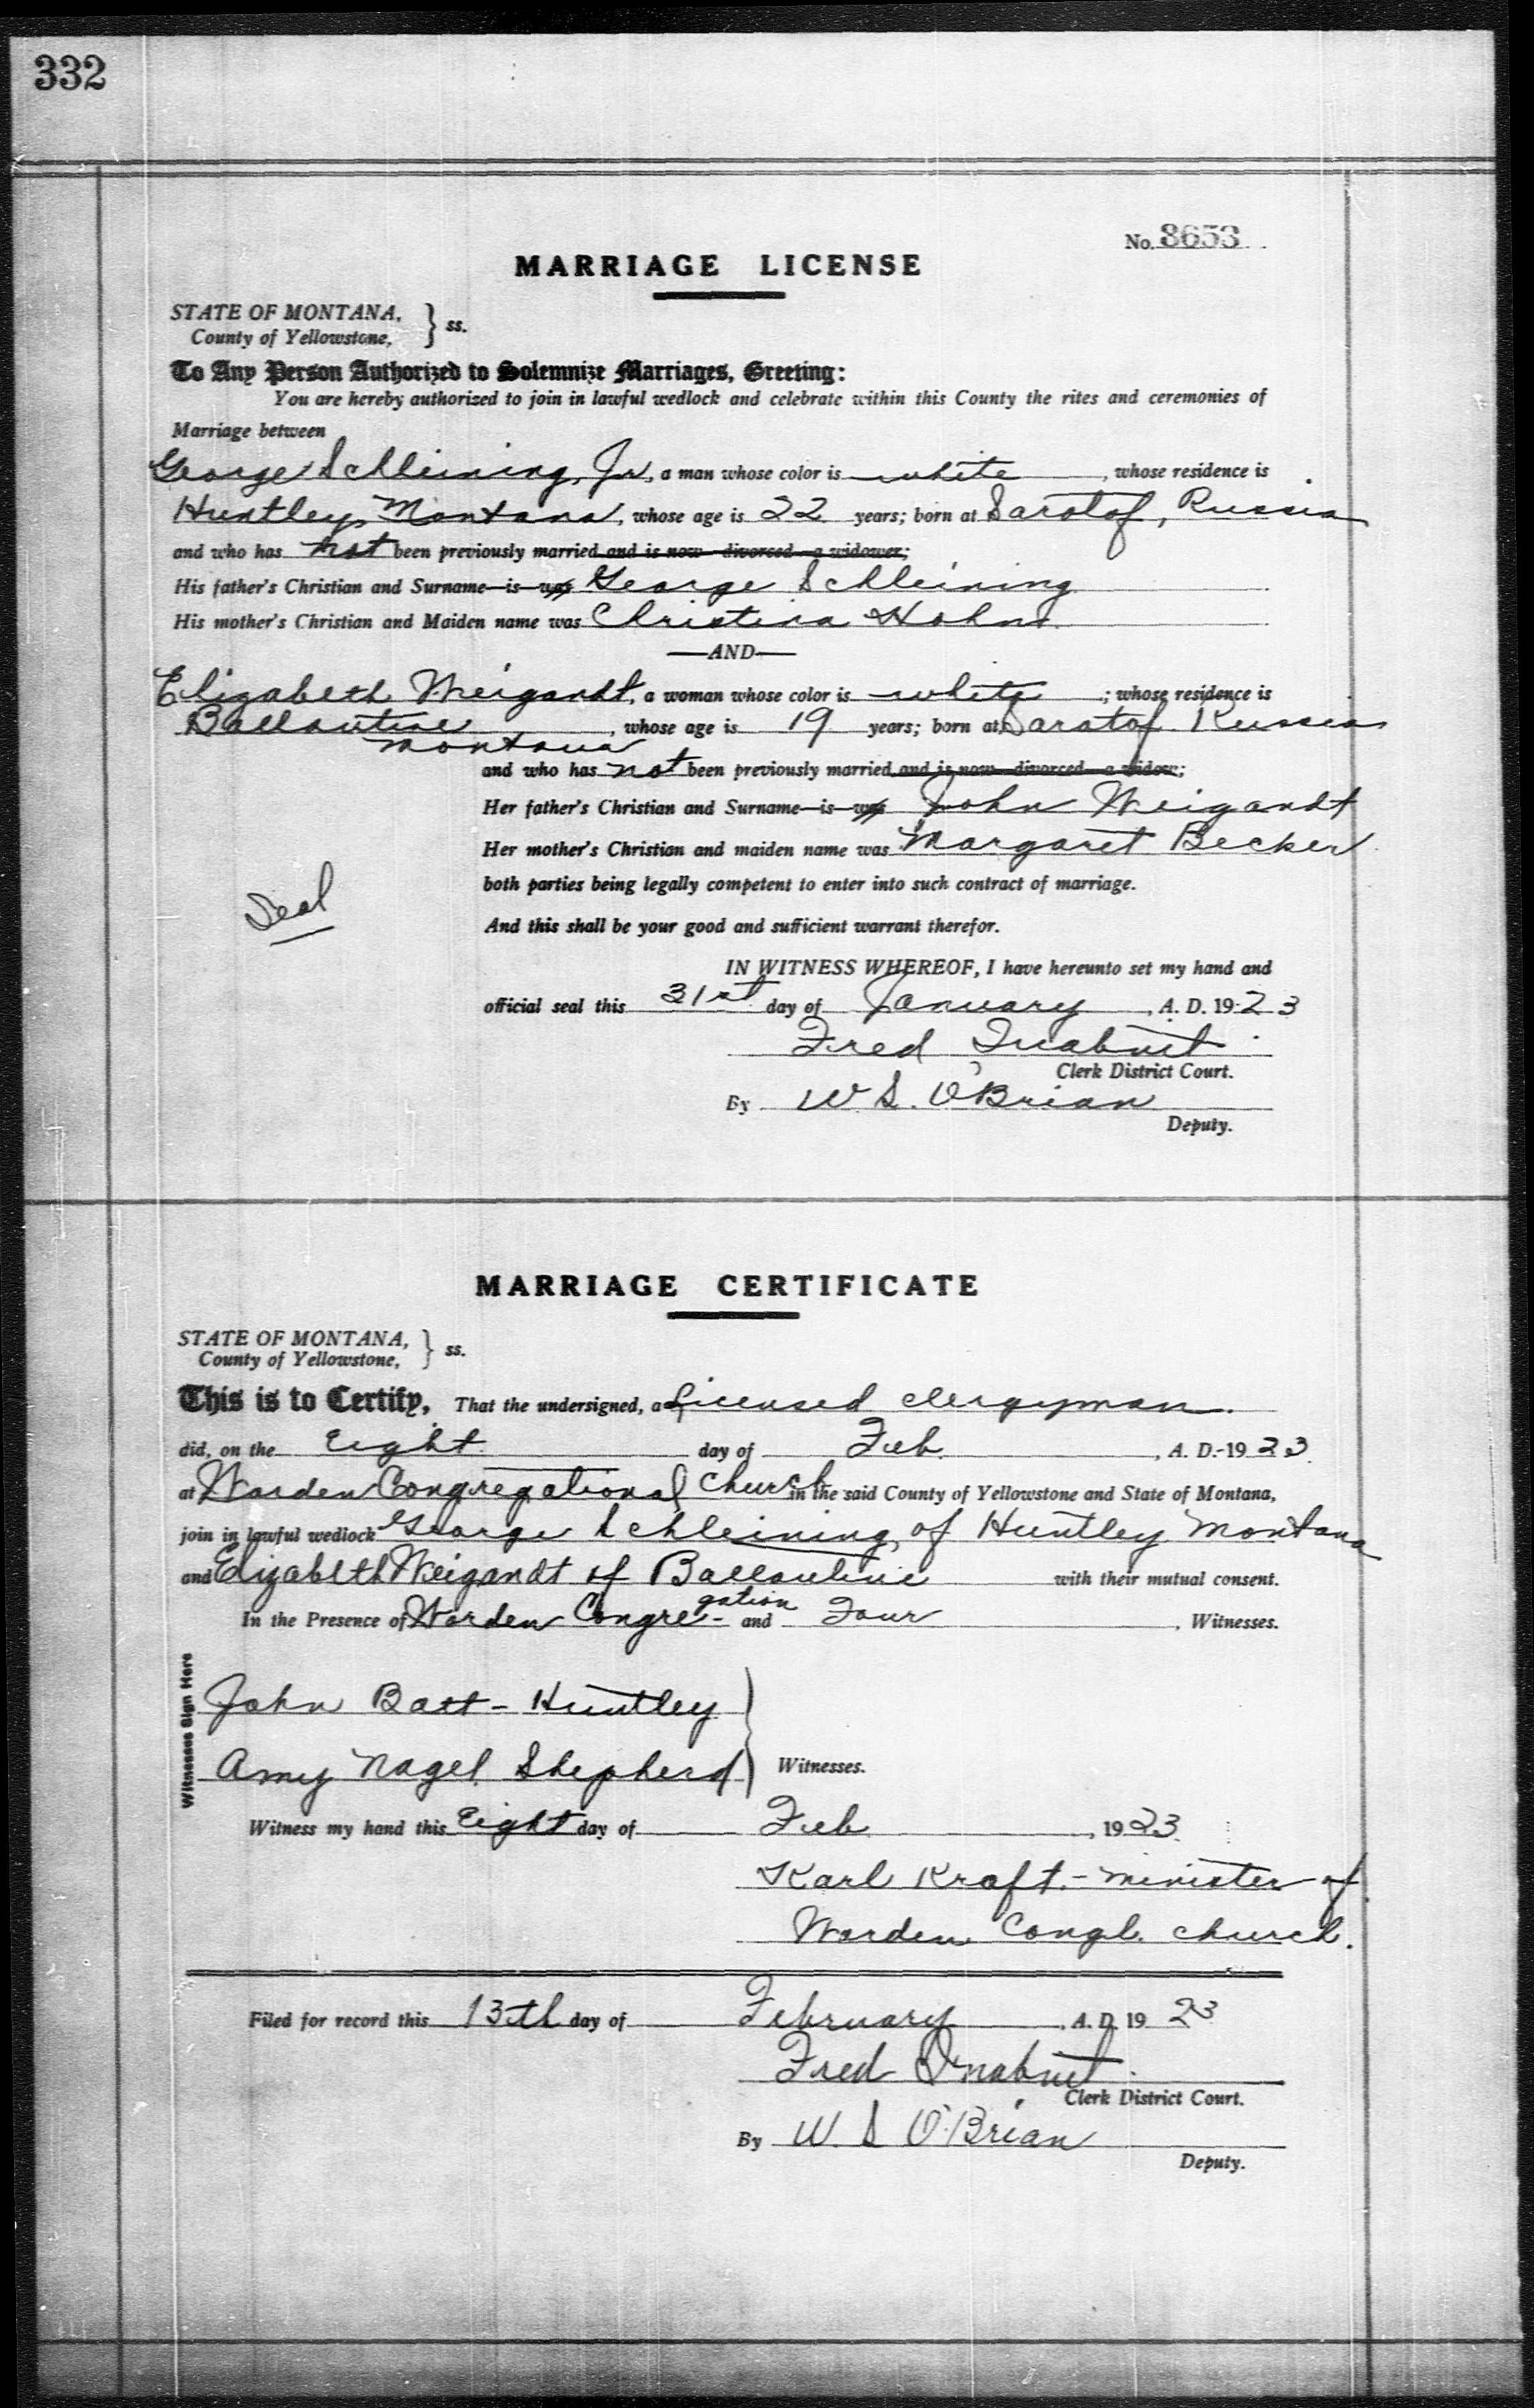 332
No. 8653
MARRIAGE LICENSE
STATE OF MONTANA,
County of Yellowstone, } ss.
To Any Person Authorized to Solemnize Marriages, Greeting:
You are hereby authorized to join in lawful wedlock and celebrate within this County the rites and ceremonies of
Marriage between
George Schleining, Jr, a man whose color is white, whose residence is
Huntley, Montana, whose age is 22 years; born at Saratof, Russia
and who has not been previously married and is now divorced a widower;
His father's Christian and Surname is was George Schleining
His mother's Christian and Maiden name was Christina Hohn
AND
Elizabeth Weigandt, a woman whose color is white; whose residence is
Ballantine, whose age is 19 years; born at Saratof Russia
Montana
and who has not been previously married and is now divorced a widow;
Her father's Christian and Surname is was John Weigandt
Her mother's Christian and maiden name was Margaret Becker
both parties being legally competent to enter into such contract of marriage.
Seal
And this shall be your good and sufficient warrant therefor.
IN WITNESS WHEREOF, I have hereunto set my hand and
official seal this 31st day of January, A. D. 1923
Fred Inabnit
Clerk District Court.
By W S. O'Brian
Deputy.
MARRIAGE CERTIFICATE
STATE OF MONTANA,
County of Yellowstone, } ss.
This is to Certify, That the undersigned, a Licensed clergyman.
did, on the Eight day of Feb, A. D. 1923
at Worden Congregational Church in the said County of Yellowstone and State of Montana,
join in lawful wedlock George Schleining, of Huntley Montana
and Elizabeth Weigandt of Ballantine with their mutual consent.
In the Presence of Worden Congre-gation and Four, Witnesses.
Witnesses Sign Here
John Batt - Huntley
Amy Nagel Shepherd
Witnesses.
Witness my hand this Eight day of Feb, 1923
Karl Kraft. - minister of
Worden Congl. church.
Filed for record this 13th day of February, A. D. 1923
Fred Inabnit
Clerk District Court.
By W. S O'Brian
Deputy.